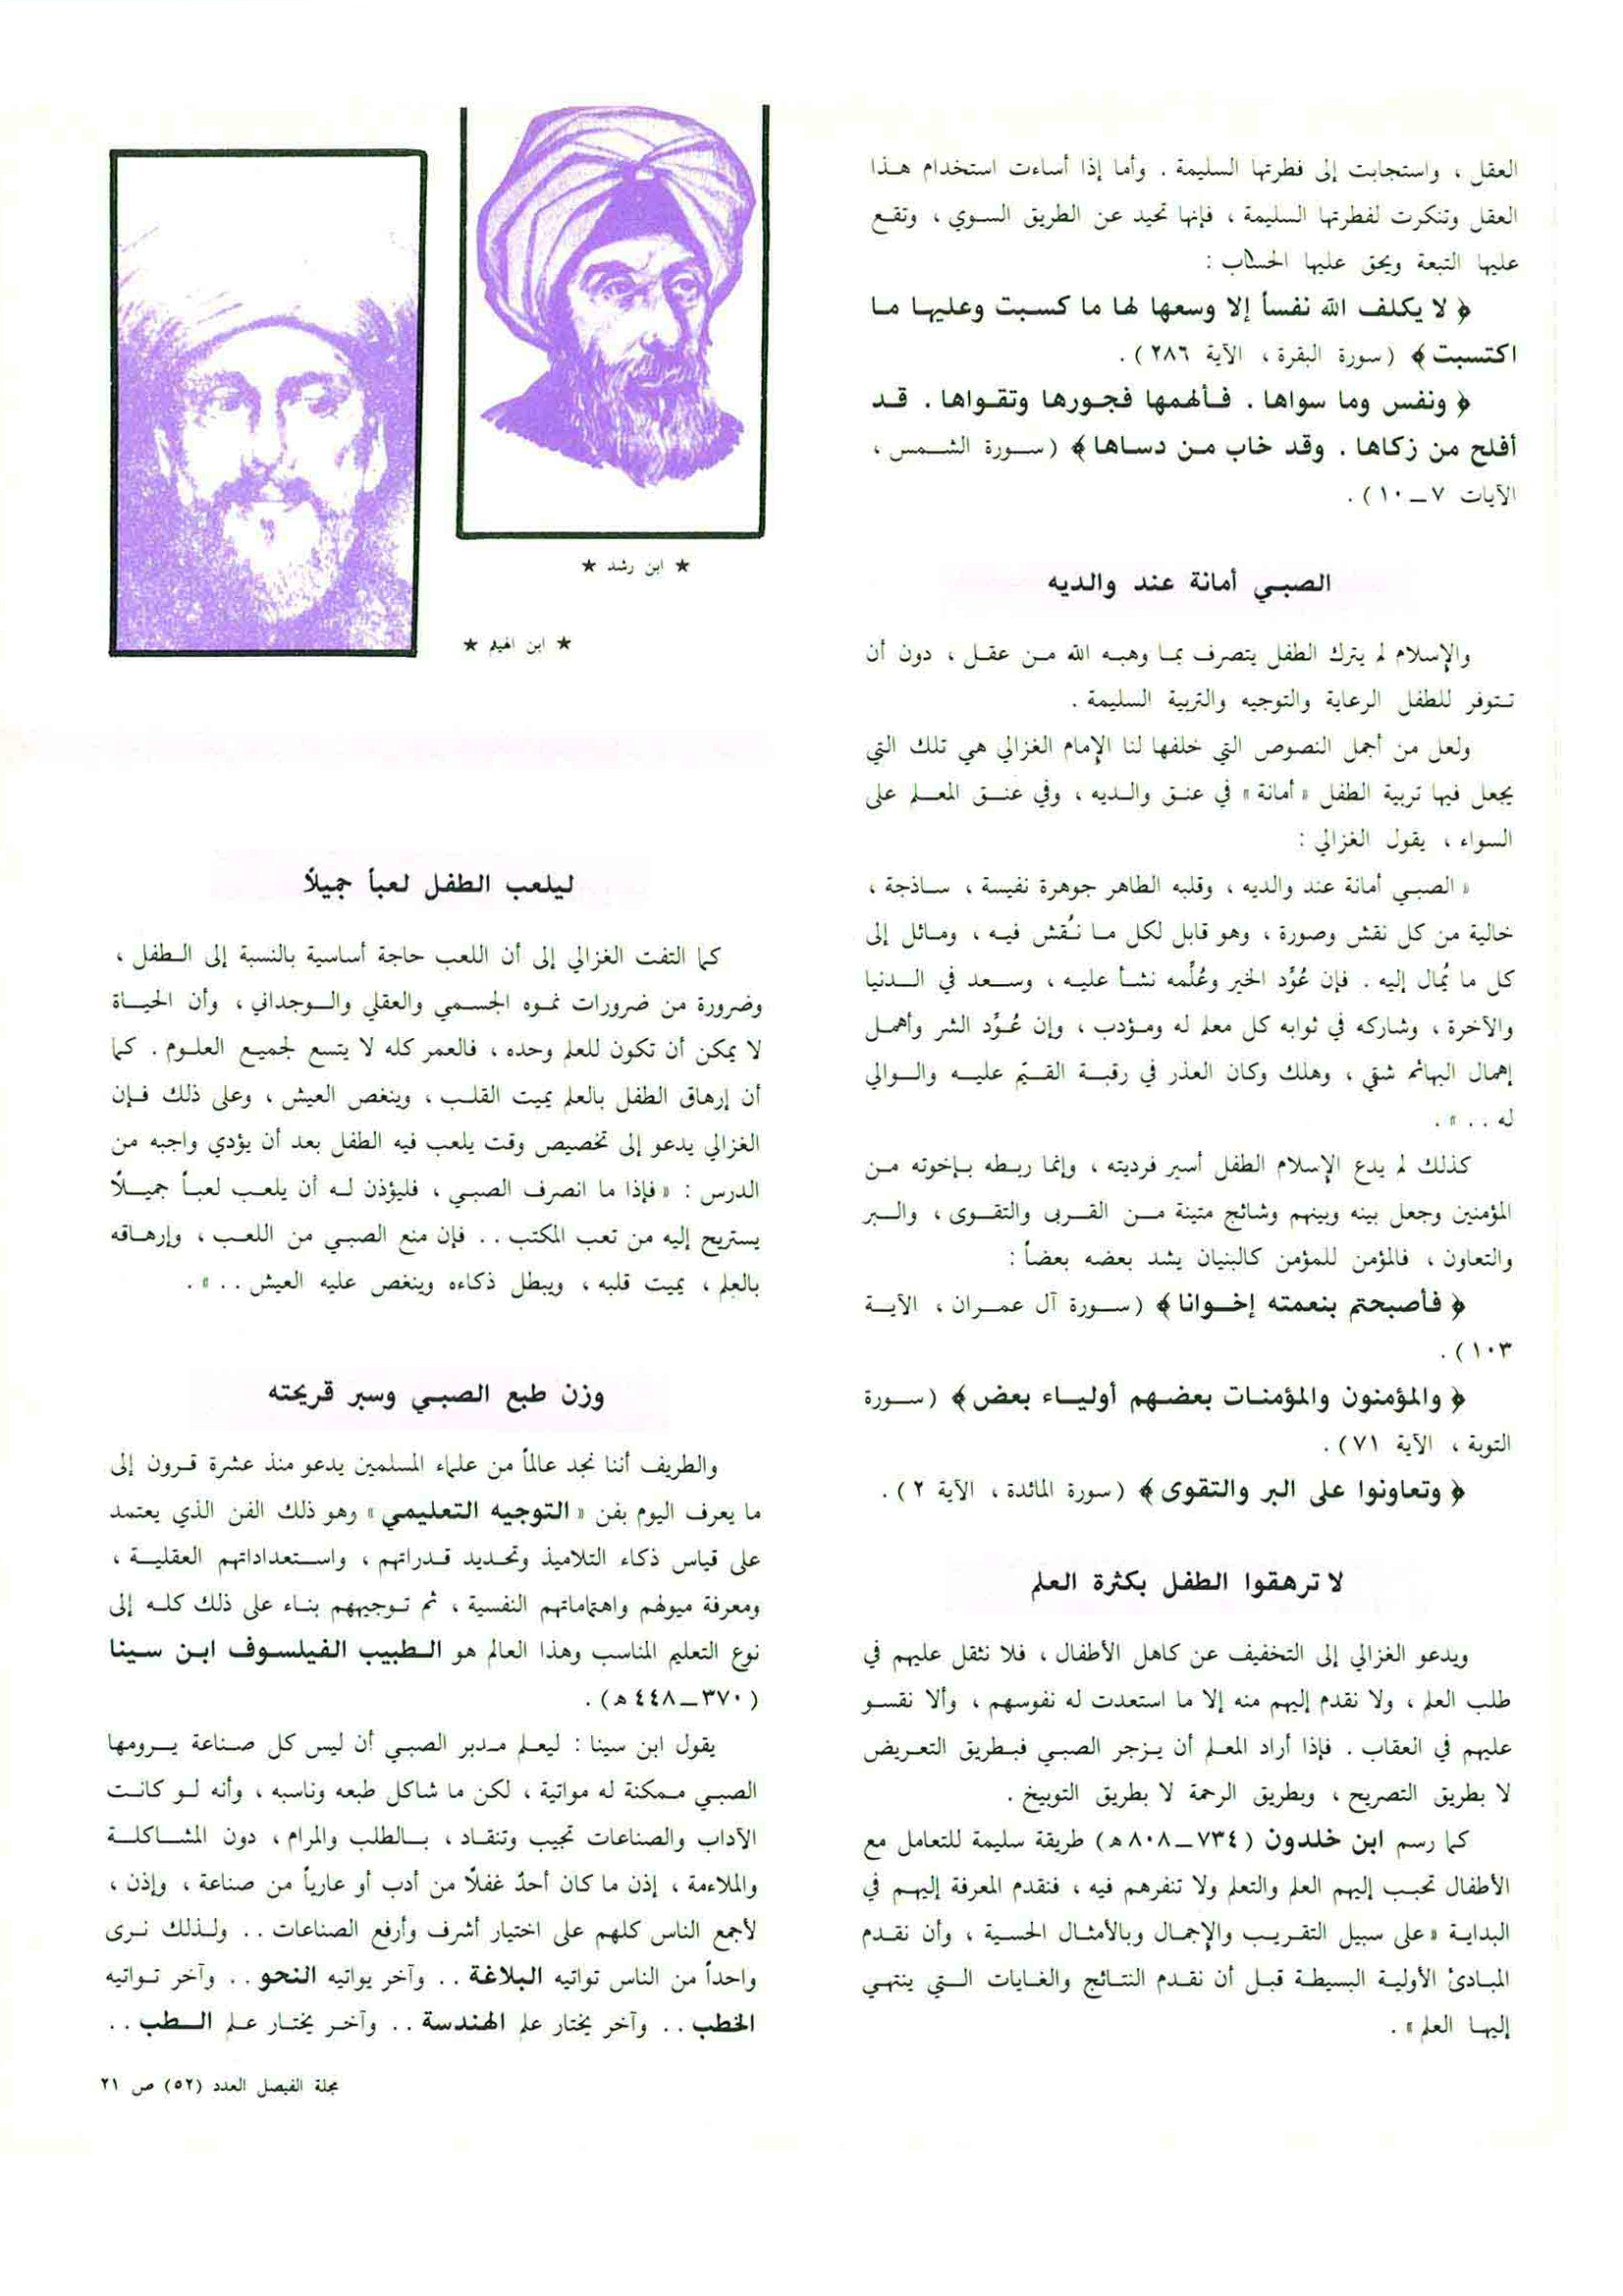 العقل ، واستجابت إلى فطرتها السليمة . وأما إذا أساءت استخدام هذا
العقل وتنكرت لفطرتها السليمة ، فإنها تحيد عن الطريق السوي ، وتقع
عليها التبعة ويحق عليها الحساب :
﴿ لا يكلف الله نفساً إلا وسعها لها ما كسبت وعليها ما
اكتسبت ﴾ ( سورة البقرة ، الآية ٢٨٦ ) .
﴿ ونفس وما سواها . فألهمها فجورها وتقواها . قد
أفلح من زكاها . وقد خاب من دساها ﴾ ( سورة الشمس ،
الآيات ٧ – ١٠ ) .
الصبي أمانة عند والديه
والإسلام لم يترك الطفل يتصرف بما وهبه الله من عقل ، دون أن
تتوفر للطفل الرعاية والتوجيه والتربية السليمة .
ولعل من أجمل النصوص التي خلفها لنا الإمام الغزالي هي تلك التي
يجعل فيها تربية الطفل « أمانة » في عنق والديه ، وفي عنق المعلم على
السواء ، يقول الغزالي :
« الصبي أمانة عند والديه ، وقلبه الطاهر جوهرة نفيسة ، ساذجة ،
خالية من كل نقش وصورة ، وهو قابل لكل ما نُقش فيه ، ومائل إلى
كل ما يُمال إليه . فإن عُوِّد الخير وعُلِّمه نشأ عليه ، وسعد في الدنيا
والآخرة ، وشاركه في ثوابه كل معلم له ومؤدب ، وإن عُوِّد الشر وأهمل
إهمال البهائم شقي ، وهلك وكان العذر في رقبة القيّم عليه والوالي
له . . » .
كذلك لم يدع الإسلام الطفل أسير فرديته ، وإنما ربطه بإخوته من
المؤمنين وجعل بينه وبينهم وشائج متينة من القربى والتقوى ، والبر
والتعاون ، فالمؤمن للمؤمن كالبنيان يشد بعضه بعضاً :
﴿ فأصبحتم بنعمته إخوانا ﴾ ( سورة آل عمران ، الآية
١٠٣ ) .
﴿ والمؤمنون والمؤمنات بعضهم أولياء بعض ﴾ ( سورة
التوبة ، الآية ٧١ ) .
﴿ وتعاونوا على البر والتقوى ﴾ ( سورة المائدة ، الآية ٢ ) .
لا ترهقوا الطفل بكثرة العلم
ويدعو الغزالي إلى التخفيف عن كاهل الأطفال ، فلا نثقل عليهم في
طلب العلم ، ولا نقدم إليهم منه إلا ما استعدت له نفوسهم ، وألا نقسو
عليهم في العقاب . فإذا أراد المعلم أن يزجر الصبي فبطريق التعريض
لا بطريق التصريح ، وبطريق الرحمة لا بطريق التوبيخ .
كما رسم ابن خلدون ( ٧٣٤ – ٨٠٨ هـ ) طريقة سليمة للتعامل مع
الأطفال تحبب إليهم العلم والتعلم ولا تنفرهم فيه ، فنقدم المعرفة إليهم في
البداية « على سبيل التقريب والإجمال وبالأمثال الحسية ، وأن نقدم
المبادئ الأولية البسيطة قبل أن نقدم النتائج والغايات التي ينتهي
إليها العلم » .
★ ابن رشد ★
★ ابن الهيثم ★
ليلعب الطفل لعباً جميلاً
كما التفت الغزالي إلى أن اللعب حاجة أساسية بالنسبة إلى الطفل ،
وضرورة من ضرورات نموه الجسمي والعقلي والوجداني ، وأن الحياة
لا يمكن أن تكون للعلم وحده ، فالعمر كله لا يتسع لجميع العلوم . كما
أن إرهاق الطفل بالعلم يميت القلب ، وينغص العيش ، وعلى ذلك فإن
الغزالي يدعو إلى تخصيص وقت يلعب فيه الطفل بعد أن يؤدي واجبه من
الدرس : « فإذا ما انصرف الصبي ، فليؤذن له أن يلعب لعباً جميلاً
يستريح إليه من تعب المكتب . . فإن منع الصبي من اللعب ، وإرهاقه
بالعلم ، يميت قلبه ، ويبطل ذكاءه وينغص عليه العيش . . » .
وزن طبع الصبي وسبر قريحته
والطريف أننا نجد عالماً من علماء المسلمين يدعو منذ عشرة قرون إلى
ما يعرف اليوم بفن « التوجيه التعليمي » وهو ذلك الفن الذي يعتمد
على قياس ذكاء التلاميذ وتحديد قدراتهم ، واستعداداتهم العقلية ،
ومعرفة ميولهم واهتماماتهم النفسية ، ثم توجيههم بناء على ذلك كله إلى
نوع التعليم المناسب وهذا العالم هو الطبيب الفيلسوف ابن سينا
( ٣٧٠ – ٤٤٨ هـ ) .
يقول ابن سينا : ليعلم مدبر الصبي أن ليس كل صناعة يرومها
الصبي ممكنة له مواتية ، لكن ما شاكل طبعه وناسبه ، وأنه لو كانت
الآداب والصناعات تجيب وتنقاد ، بالطلب والمرام ، دون المشاكلة
والملاءمة ، إذن ما كان أحدٌ غفلاً من أدب أو عارياً من صناعة ، وإذن ،
لأجمع الناس كلهم على اختيار أشرف وأرفع الصناعات . . ولذلك نرى
واحداً من الناس تواتيه البلاغة . . وآخر يواتيه النحو . . وآخر تواتيه
الخطب . . وآخر يختار علم الهندسة . . وآخر يختار علم الطب . .
مجلة الفيصل العدد (٥٢) ص ٢١